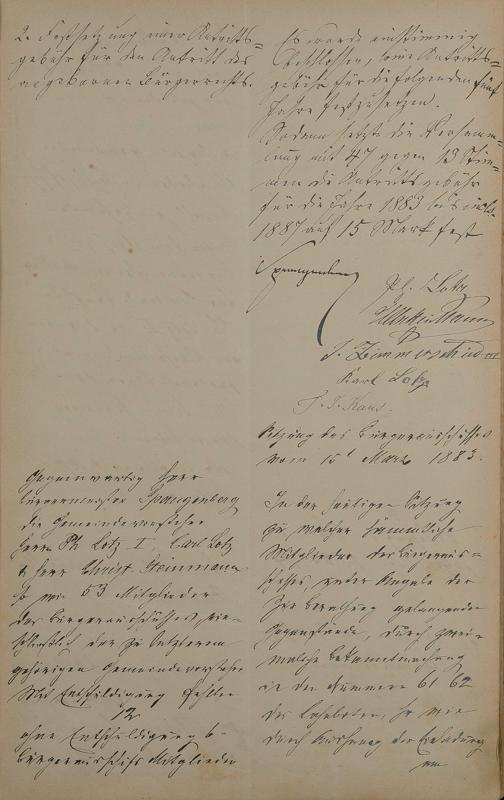 2. Festsetzung einer Antritts=
gebühr für den Antritt des
angeborenen Bürgerrechts.
Es wurde einstimmig
beschlossen, eine Antritts=
gebühr für die folgenden fünf
Jahre festzusetzen.
Sodann setzte die Versamm=
lung mit 47 gegen 13 Stim=
men die Antrittsgebühr
für die Jahre 1883 bis incl.
1887 auf 15 Mark fest
Spangenberg
Ph. Lotz
J. Zimmerschied III
Karl Lotz
Sitzung des Bürgerausschusses
vom 15t März 1883.
Gegenwärtig Herr
Bürgermeister Spangenberg
die Gemeindevorsteher
Herrn Ph Lotz I, Carl Lotz
& Herr Christ Heinmann
so wie 53 Mitglieder
des Bürgerausschusses ein=
schließlich der zu letzterem
gehörigen Gemeindevorsteher
Mit Entschuldigung fehlen
12
ohne Entschuldigung 6
Bürgerausschuß Mitglieder
In der heutigen Sitzung
zu welcher sämmtliche
Mitglieder des Bürgeraus=
schusses, unter Angabe der
zur Berathung gelangenden
Gegenstände, durch zwei=
malige Bekanntmachung
in den Nummern 61 62
des Lahnboten, so wie
durch Aushang der Einladung
am